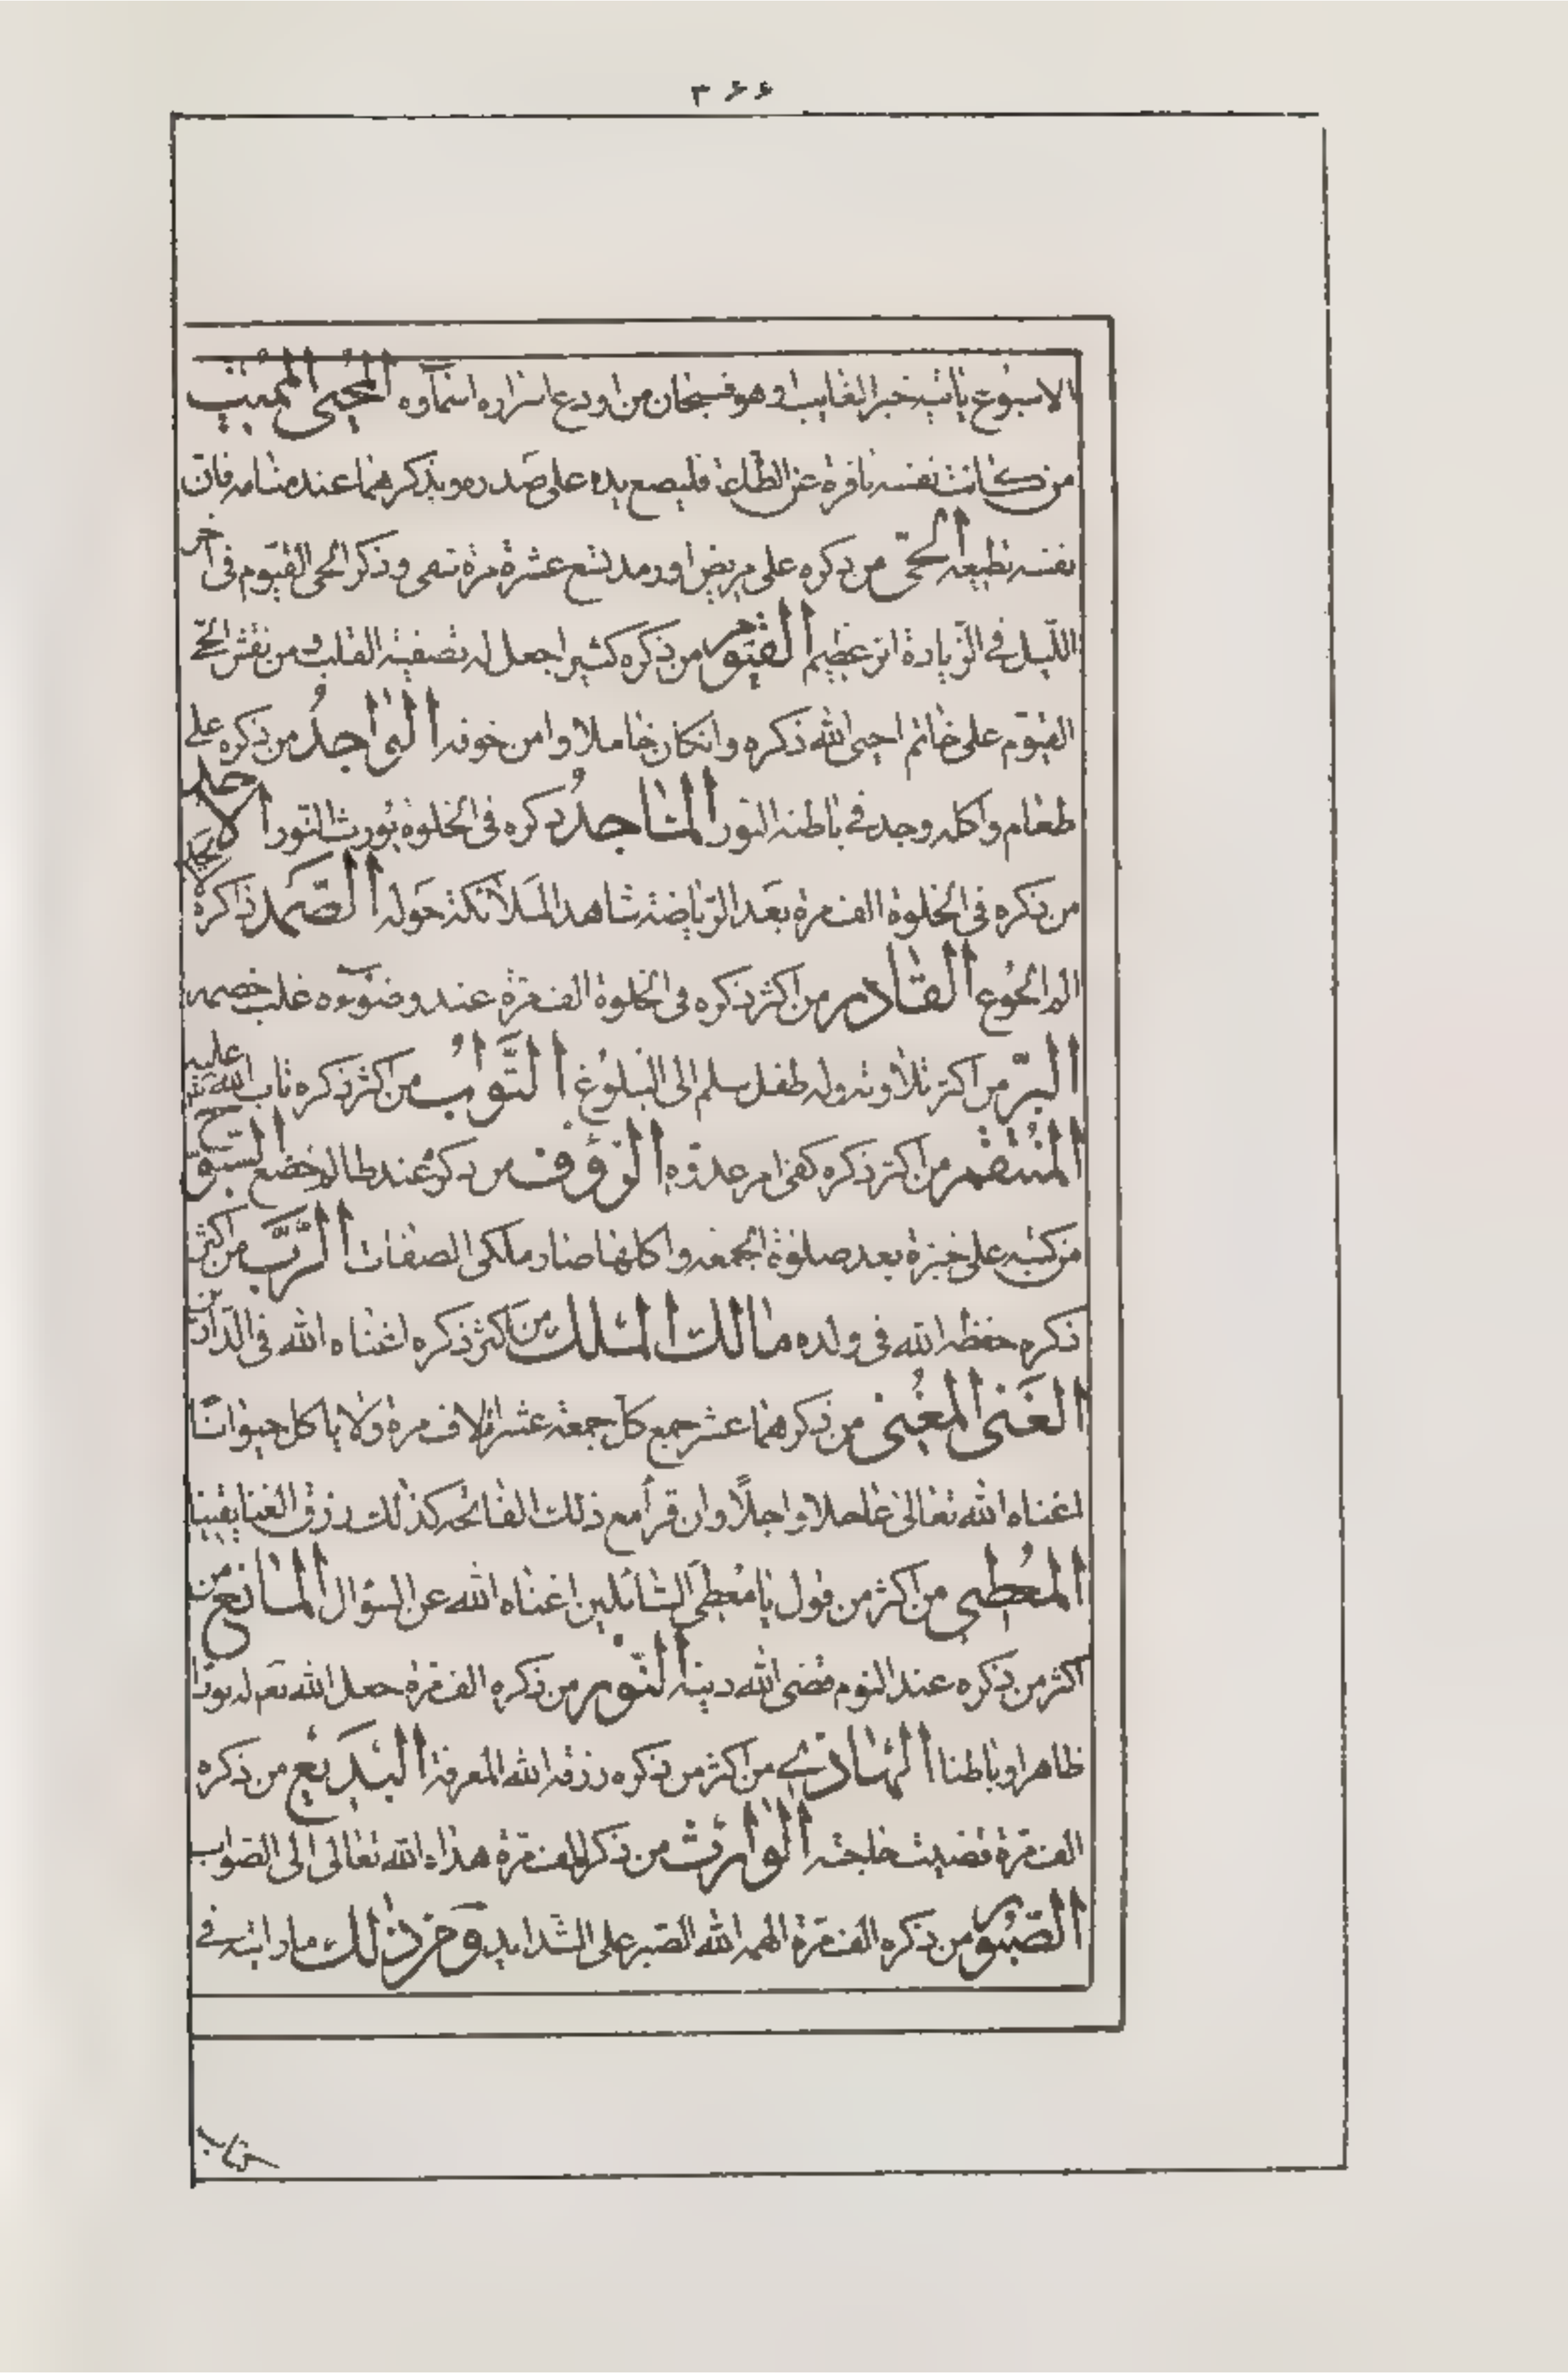 ۳۶۶
الاسبوع ياتيه خبر الغايب او هو فسبحان من اودع اسراره اسماؤه المحيى المميت
من كانت نفسه نافرة عن الطاعة فليضع يده على صدره ويذكرهما عند منامه فان
نفسه تطيعه الحىّ من ذكره على مريض او رمد تسع عشرة مرة شفى وذكر الحى القيوم فى اخر
الليل فى الزيادة اثر عظيم القيّوم من ذكره كثيرا جعل له تصفية القلب ومن نقش الحىّ
القيوم على خاتم احيى الله ذكره وانكان خاملا وامن خوفه الواجدُ من ذكره على
طعام واكله وجد فى باطنه النور الماجدُ ذكره فى الخلوة يورث النور الاحد
من ذكره فى الخلوة الف مرة بعد الرياضة شاهد الملائكة حوله الصّمد ذاكره
الم الجوع القادر من اكثر ذكره فى الخلوة الف مرة عند وضوءه غلب خصمه
البرّ من اكثر تلاوته وله طفل سلم الى البلوغ التّوابُ من اكثر ذكره تاب الله عليه
المنتقم من اكثر ذكره كفى امر عدوّه الرؤف من ذكره عند ظالم خضع السبّوح
من كتبه على خبزة بعد صلوة الجمعه واكلها صار ملكى الصفات الرّبّ من اكثر
ذكره حفظه الله فى ولده مالك الملك من اكثر ذكره اغناه الله فى الدارين
الغَنى المغُنى من ذكرهما عشر جمع كل جمعة عشر الاف مرة ولا ياكل حيوانًا
اغناه الله تعالى عاجلا واجلًا وان قرأ مع ذلك الفاتحه كذلك رزق الغنا يقينا
المعُطى من اكثر من قول يا مُعطى السائلين اغناه الله عن السؤال المانع من
اكثر من ذكره عند النوم قضى الله دينه النّور من ذكره الف مرة جعل الله تعم له نورا
ظاهرا وباطنا الهادى من اكثر من ذكره رزقه الله المعرفة البديع من ذكره
الف مرة قضيت حاجته الوارث من ذكره الف مرة هداه الله تعالى الى الصواب
الصّبور من ذكره الف مرة الهمه الله الصبر على الشدايد ومن ذلك ما رايته فى
كتاب